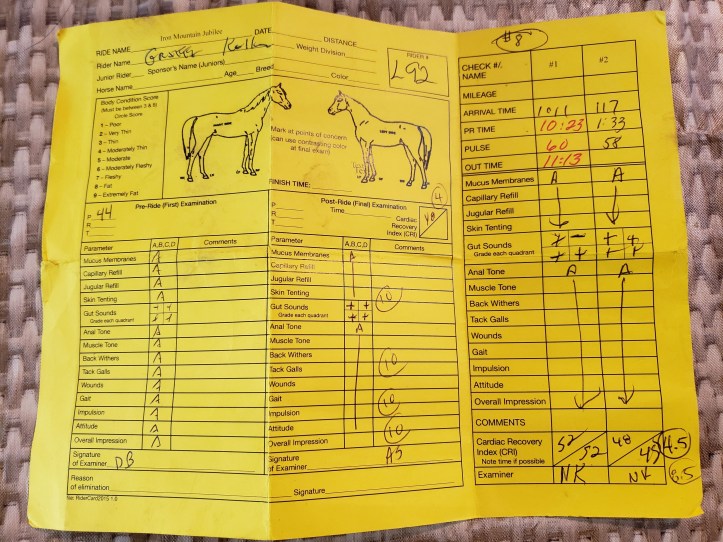 Iron Mountain Jubilee
RIDE NAME DATE
Rider Name
Junior Rider Sponsor's Name (Juniors)
Horse Name Age Breed
Body Condition Score
(Must be between 3 & 8)
Circle Score
1 – Poor
2 – Very Thin
3 – Thin
4 – Moderately Thin
5 – Moderate
6 – Moderately Fleshy
7 – Fleshy
8 – Fat
9 – Extremely Fat
P 44
R
T
Pre-Ride (First) Examination
Parameter A,B,C,D Comments
Mucus Membranes A
Capillary Refill A
Jugular Refill A
Skin Tenting A
Gut Sounds + +
Grade each quadrant + +
Anal Tone A
Muscle Tone A
Back Withers A
Tack Galls A
Wounds A
Gait A
Impulsion A
Attitude A
Overall Impression A
Signature
of Examiner DB
Reason
of elimination
Signature
DISTANCE
Weight Division
Color
RIDER #
L92
Mark at points of concern
(can use contrasting color
at final exam)
FINISH TIME:
4
Post-Ride (Final) Examination
P Time
R
T
Cardiac
Recovery
Index (CRI)
48
Parameter A,B,C,D Comments
Mucus Membranes A
Capillary Refill
Jugular Refill
Skin Tenting 10
Gut Sounds + +
Grade each quadrant + +
Anal Tone A
Muscle Tone
Back Withers
Tack Galls 10
Wounds
Gait 10
Impulsion
Attitude 10
Overall Impression
Signature
of Examiner AS
#8
CHECK #/. #1 #2
NAME
MILEAGE
ARRIVAL TIME 1011 117
PR TIME 10:23 1:33
PULSE 60 58
OUT TIME 11:13
Mucus Membranes A A
Capillary Refill
Jugular Refill
Skin Tenting
Gut Sounds + – + +
Grade each quadrant + + + +
Anal Tone A A
Muscle Tone
Back Withers
Tack Galls
Wounds
Gait
Impulsion
Attitude
Overall Impression
COMMENTS
Cardiac Recovery 52 52 48 48 4.5
Index (CRI)
Note time if possible
Examiner NK NK 8.5